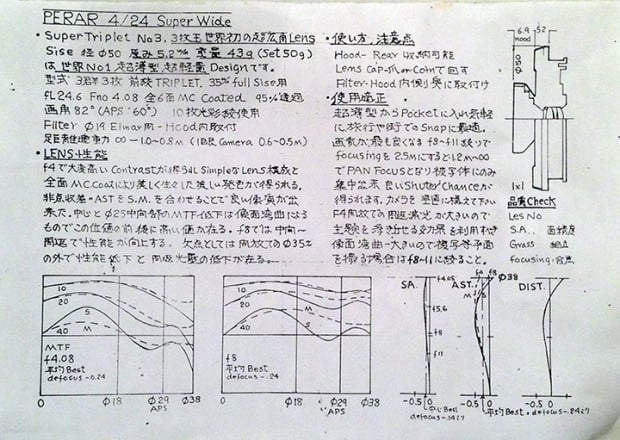 PERAR 4/24 Super Wide
・Super Triplet No3. 3枚玉世界初の超広角Lens
Sise 径Φ50 厚み5.2% 重量43g (Set 50g)
は世界No1 超薄型 超軽量 Designです。
型式 3群3枚 前絞TRIPLET. 35% full Sise用
fL 24.6 Fno 4.08 全6面 MC Coated 95%透過
画角 82° (APS '60°) 10枚光彩絞使用
Filter Φ19 Elmar用-Hood内取付
∞-1.0~0.8m (1眼Camera 0.6~0.5m)
・LENS性能
f4で大変高いContrastが得られSimpleなLens構成と
全面MC.Coatにより美しく生々しい発色が得られる。
非点収差=ASTをS.M.を合わせることで良い像質が出
来た。中心とΦ25中間部のMTF低下は像面湾曲による
ものでこの位置の前後に高い値が在る。f8では中向~
周辺で性能が向上する。欠点としては開放でのΦ35%
の外で性能低下と周辺光量の低下が在る。
・使い方,注意点
Hood-Rear 収納可能
Lens Cap
Filter-Hood内側奥に取付け
・使用
超薄型からPocketに入れ気軽
に旅行や街でのSnapに最適。
画質が最も良くなるf8~f11絞りで
focusingを2.5mにすると1.2m~∞
でPAN Focusとなり被写体にのみ
集中出来 良いShuter Chanceが
得られます。カメラを
F4開放での周辺減光が大きいので
主題を浮き立せる効果を利用
像面湾曲-大きいので複写等平面
を撮る場合はf8~f11に絞ること。
6.9 5.2
Hood
Φ50
1x1
品質Check
Les No
S.A.. 面精度
Grass
focusing.合点
10
20
40
S
M
MTF
f4.08
平均Best
defocus-.024
0 Φ18 Φ29 Φ38
APS
10
20
40
S
M
f8
平均Best
defocus-.24
0 Φ18 Φ29 Φ38
APS
SA.
f4.05
f5.6
f8
f11
-0.5 0
AST.
f4 f8
M S
Φ38
-0.5 0
DIST.
-0.5 0